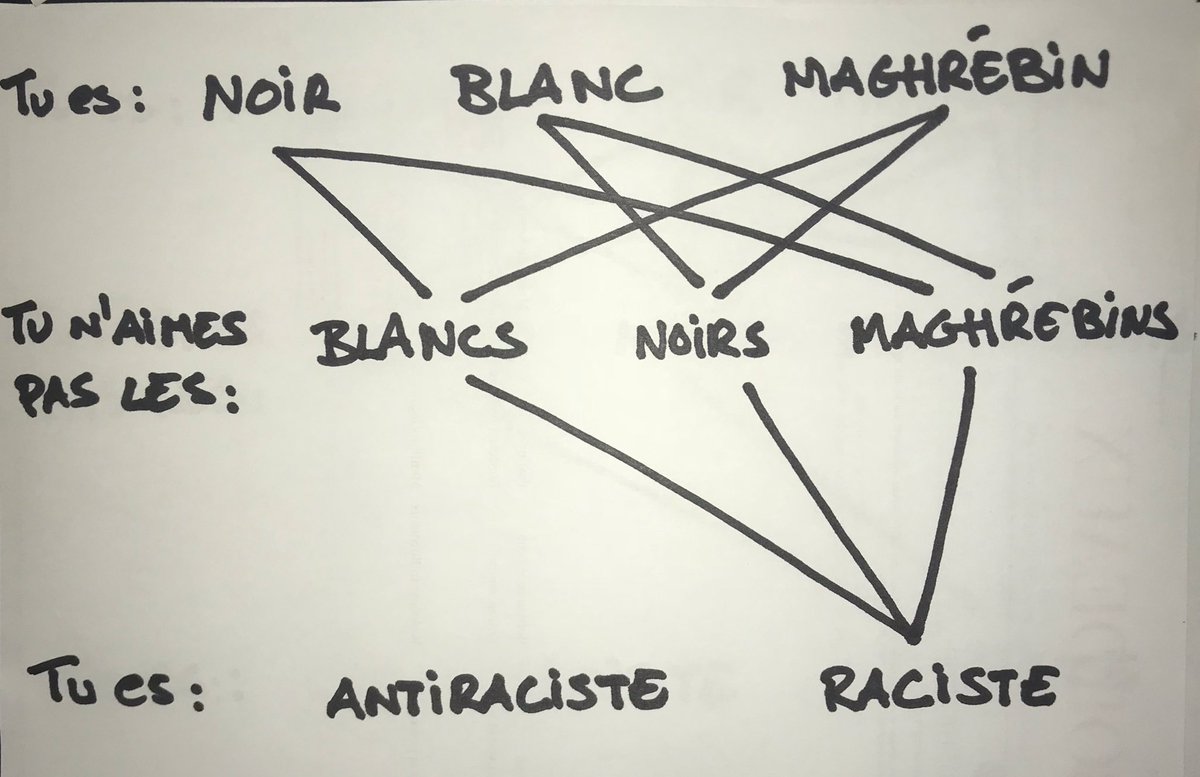 Tu es : NOiR BLANC MAGHRÉBiN
TU N'AiMES BLANCS NOiRS MAGHRÉBiNS
PAS LES :
Tu es : ANTiRACiSTE RACiSTE